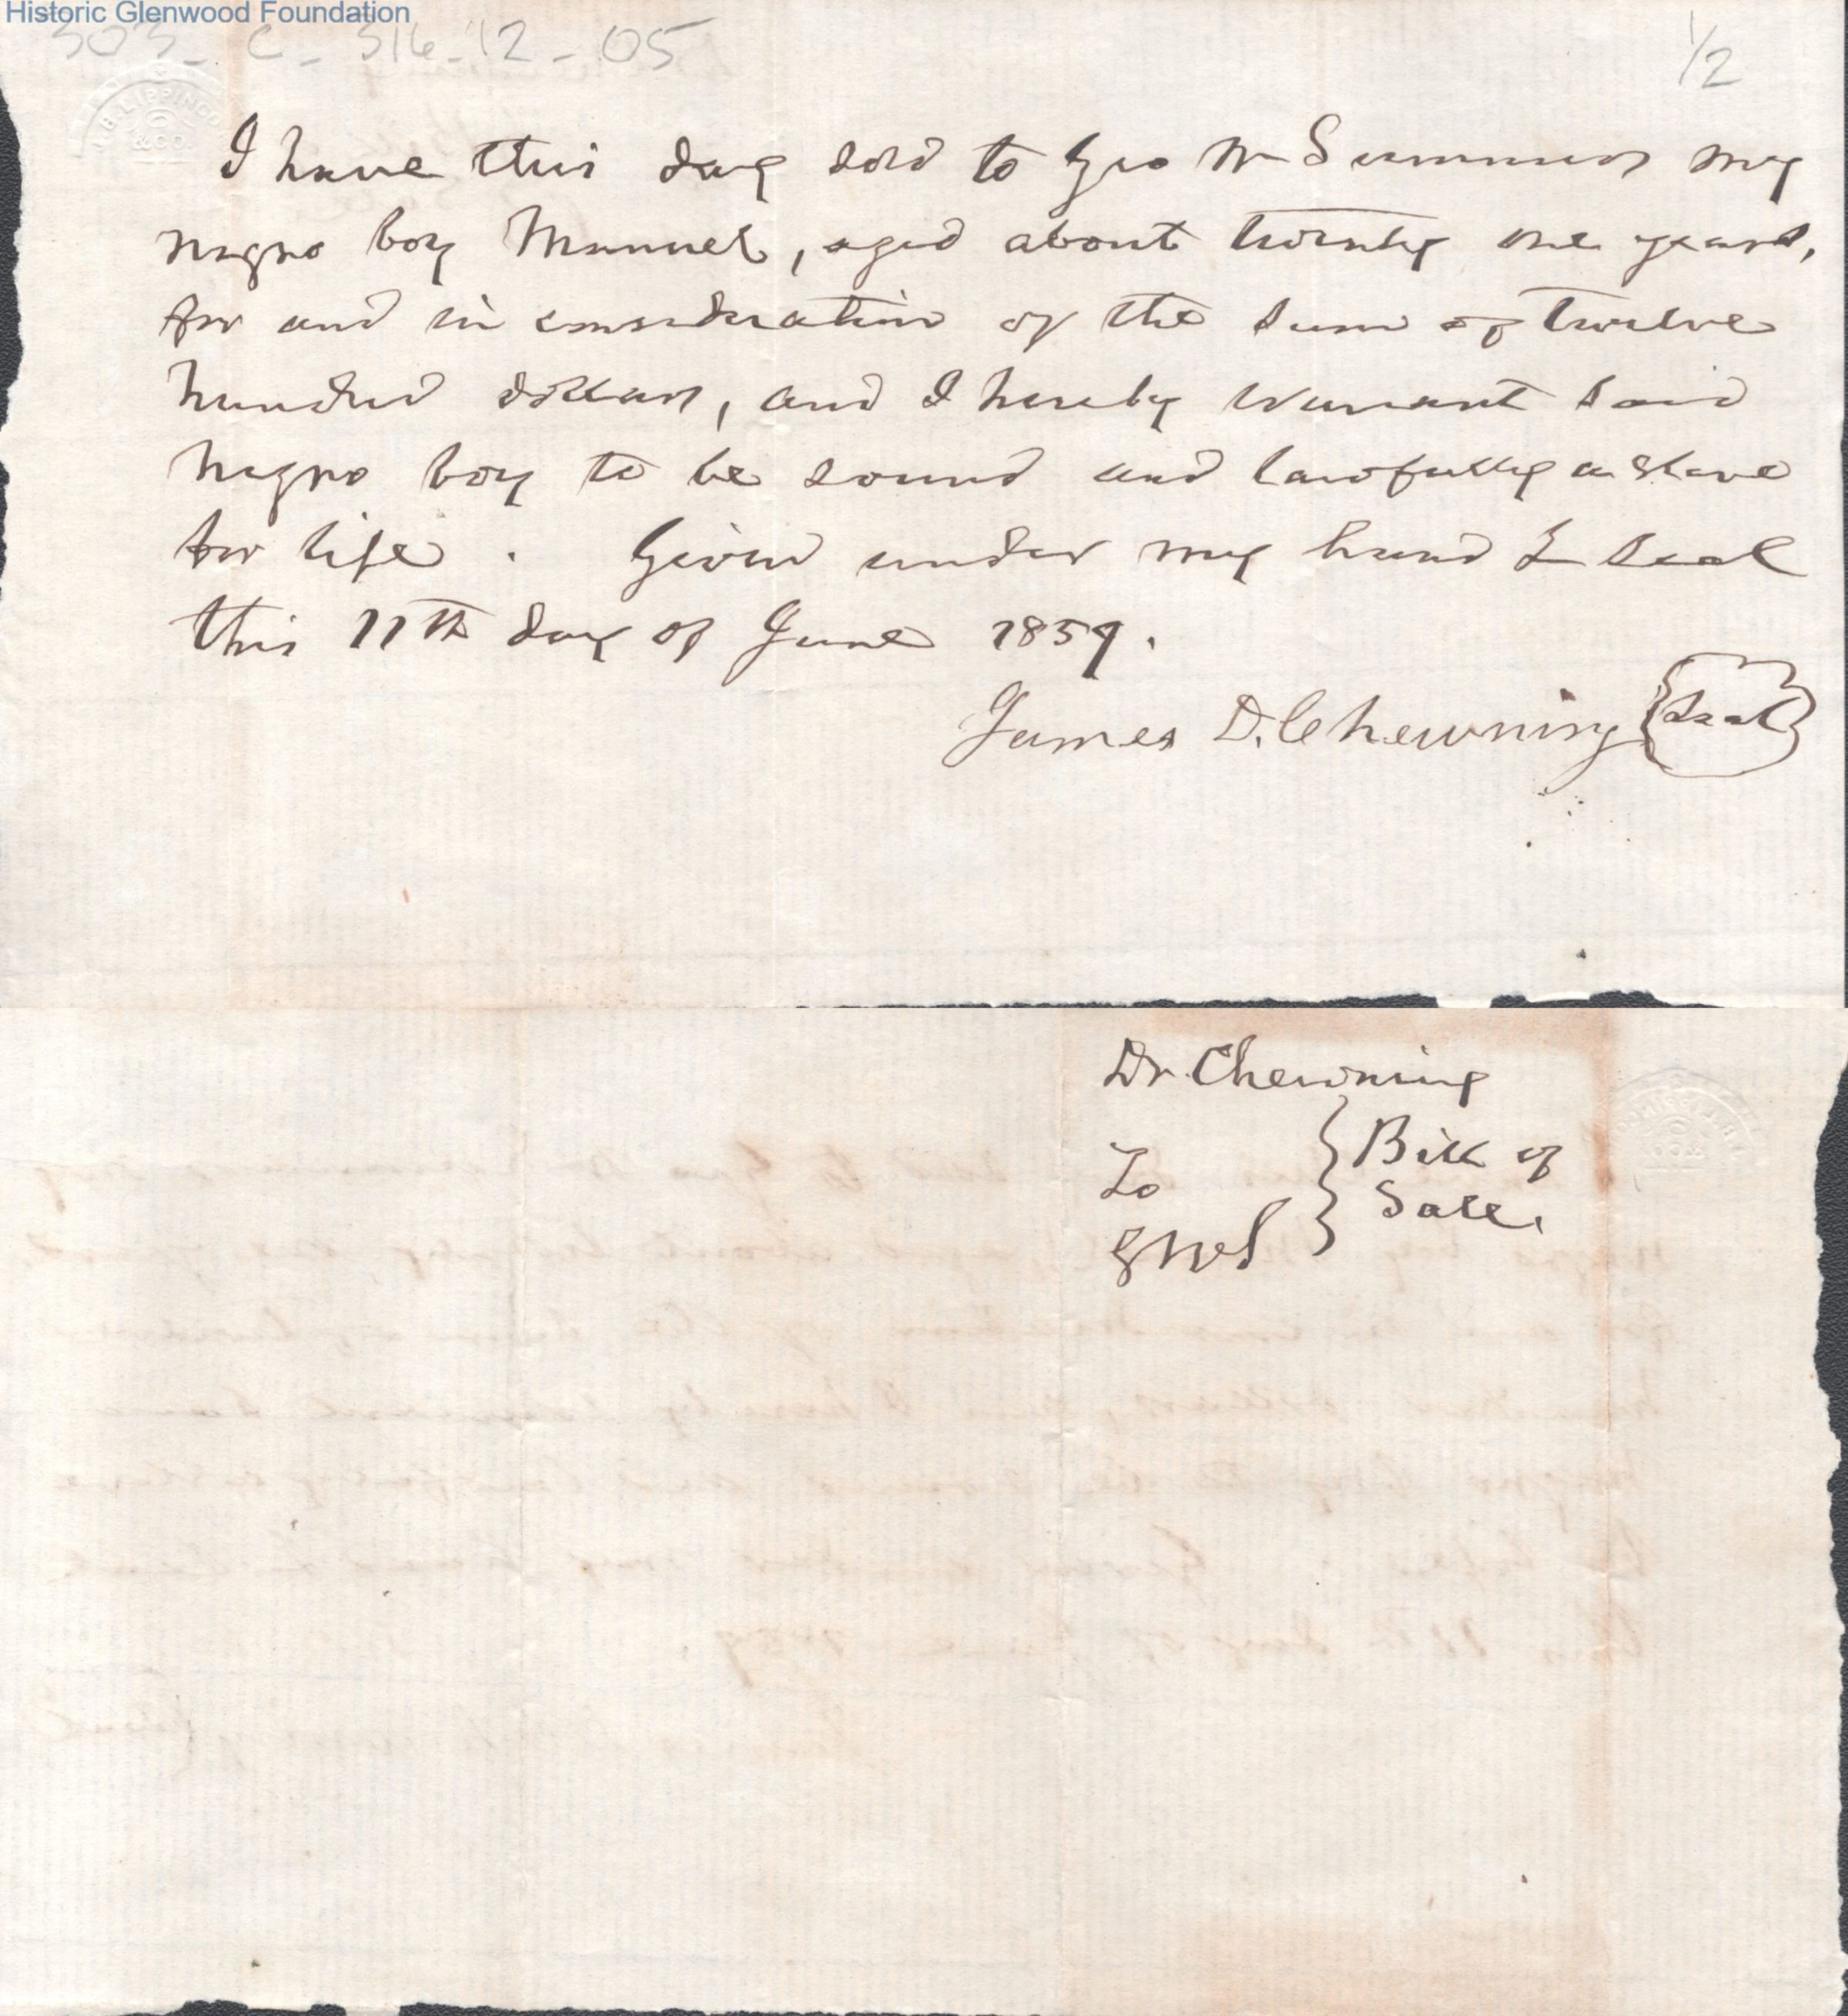 Historic Glenwood Foundation
303_C_316_12_05
1/2
J.B. LIPPINCOTT
&CO.
I have this day sold to Geo W Summers my
negro boy Manuel, aged about twenty one years,
for and in consideration of the sum of twelve
hundred dollars, and I hereby warrant said
negro boy to be sound and lawfully a slave
for life. Given under my hand & seal
this 11th day of June 1859.
James D. Chewning {Seal}
Dr. Chewning
To } Bill of
GWS } Sale.